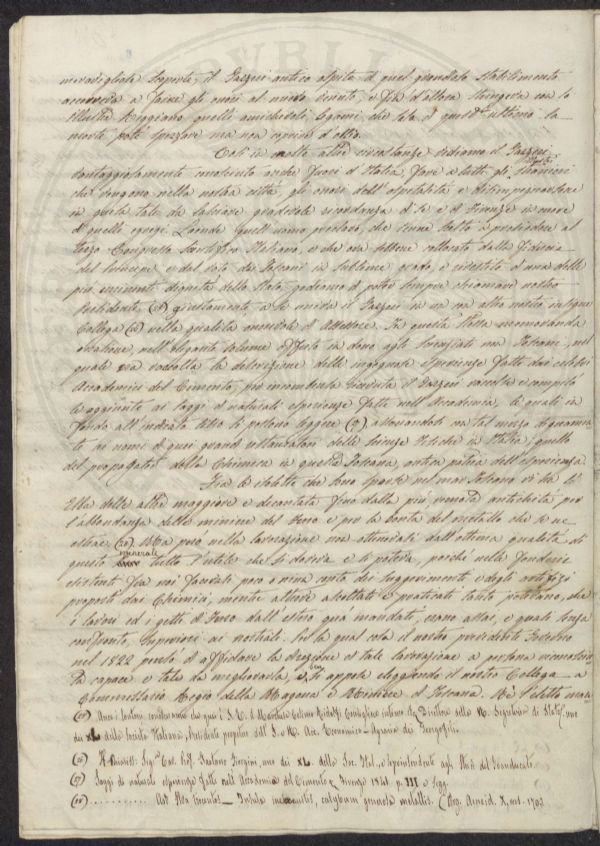 maravigliose scoperte; il Gazzeri antico ospite di quel grandioso stabilimento
accorreva a farne gli onori al nuovo venuto, e fin d'allora stringeva con lo
illustre Reggiano quelli amichevoli legami che solo di quest'ultimo la
morte potè spezzare ma non coprire d'oblio.
Così in molte altre circostanze vediamo il Gazzeri
vantaggiosamente conosciuto anche fuori d'Italia, fare a tutti gli stranieri
che vengono nella nostra città, gli onori dell'ospitalità e
in guisa tale da lasciare gradevole ricordanza di se e di Firenze in more
di quelli egregi. Laonde quell'uomo preclaro, che venne scelto a presiedere al
terzo Congresso Scientifico Italiano, e che ora sebbene collocato dalla fiducia
del Principe e dal voto dei Toscani in sublime grado, e rivestito d'una delle
più eminenti dignità dello Stato, godiamo di poter sempre chiamare nostro
Presidente, giustamente a se univa il Gazzeri in un con altro nostro insigne
Collega nella qualità onorevole di Assessore. In questa stessa memoranda
occasione, nell'elegante volume offerto in dono agli Scienziati non Toscani, nel
quale era raccolta la descrizione delle ingegnose esperienze fatte dai celebri
Accademici del Cimento, per incombenza ricevuta il Gazzeri raccolse e compilò
le aggiunte ai saggi di naturali esperienze fatte nell'Accademia, le quali in
fondo all'indicato libro si possono leggere associandosi con tal mezzo degnamen
te ai nomi di quei grandi restauratori delle scienze fisiche in Italia, quello
del propagatore della Chimica in questa Toscana, antica patria dell'esperienza.
Fra le isolette che sono sparse nel mar Toscano vi ha l'
Elba delle altre maggiore e decantata fino dalla più remota antichità per
l'abbondanza delle miniere del ferro e per la bontà del metallo che se ne
estrae. Ma poco nella lavorazione noi ottenevasi dall'ottima qualità di
questo minerale tutto l'utile che si doveva e si poteva, perché nelle fonderie
esistenti fra noi facevasi poco o niun conto dei suggerimenti e degli artifizi
proposti dai Chimici, mentre altrove ascoltati e praticati tanto potevano, che
i lavori ed i getti di ferro dall'estero quà mandati, erano assai, e quasi senza
confronto, superiori ai nostrali. Per la qual cosa il nostro precedente Governo
nel 1822 pensò di affidare la direzione di tale lavorazione a persona
capace e tale da migliorarla, e ben si appose eleggendo il nostro Collega a
Commissario Regio della Magona e Miniere di Toscana. Nè s'illuse
Ameri. Lontano, considerando che quei i S. E. il Marchese Cosimo Ridolfi Consigliere intimo e Direttore della R. Segreteria di Stato, uno
dei XL della Società Italiana, Presidente perpetuo dell'I. e R. Acc. Economico-Agraria dei Georgofili.
Il Chiariss: Sig. Cav. Prof. Gaetano Giorgini, uno dei XL della Soc. Ital., e Soprintendente agli Studi del Granducato.
(27) Saggi di naturali esperienze fatte nell'Accademia del Cimento, Firenze 1841. p. III e seg.
(28) .......... Ast Ilva trecentos — Insula inexaustis, calybum generosa metallis. (Virg. Aeneid. X, vers. 173.